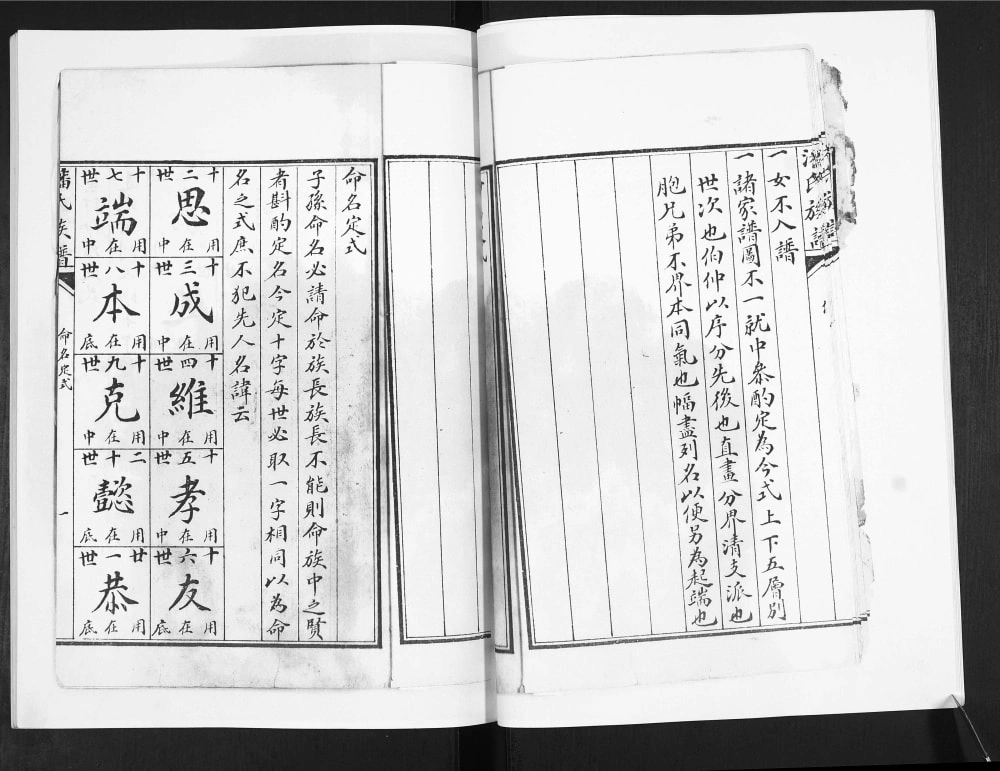 氏族譜
一女不入譜
一諸家譜圖不一就中叅酌定為今式上下五層別
世次也伯仲以序分先後也直畫分界清支派也
胞兄弟不界本同氣也幅盡列名以便另為起端也
命名定式
子孫命名必請命於族長族長不能則命族中之賢
者斟酌定名今定十字每世必取一字相同以為命
名之式庶不犯先人名諱云
十二世
思
用在中
十三世
成
用在中
十四世
維
用在中
十五世
孝
用在中
十六世
友
用在底
十七世
端
用在中
十八世
本
用在底
十九世
克
用在中
二十世
懿
用在底
廿一世
恭
用在底
潘氏族譜
命名定式
一